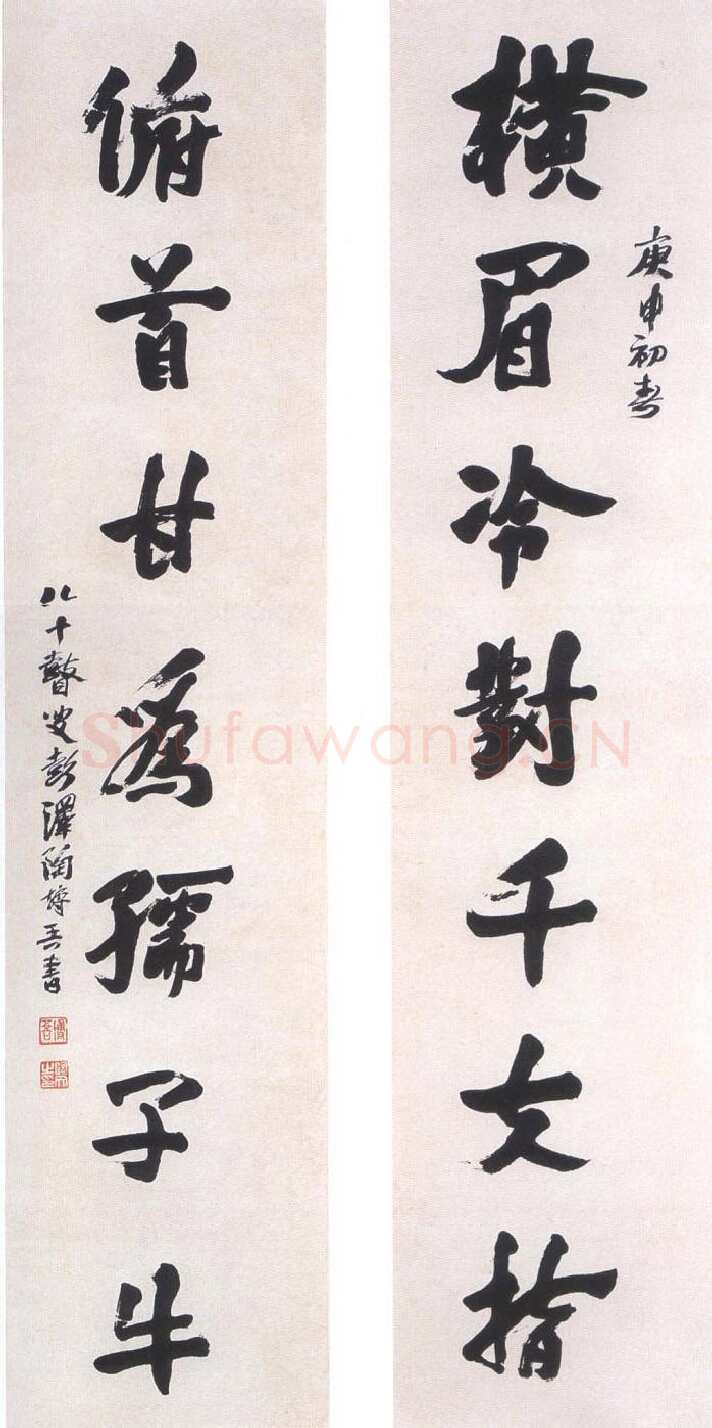 庚申初春
橫眉冷對千夫指
俯首甘爲孺子牛
八十瞽叟彭澤陶博吾書
Shufawang.CN